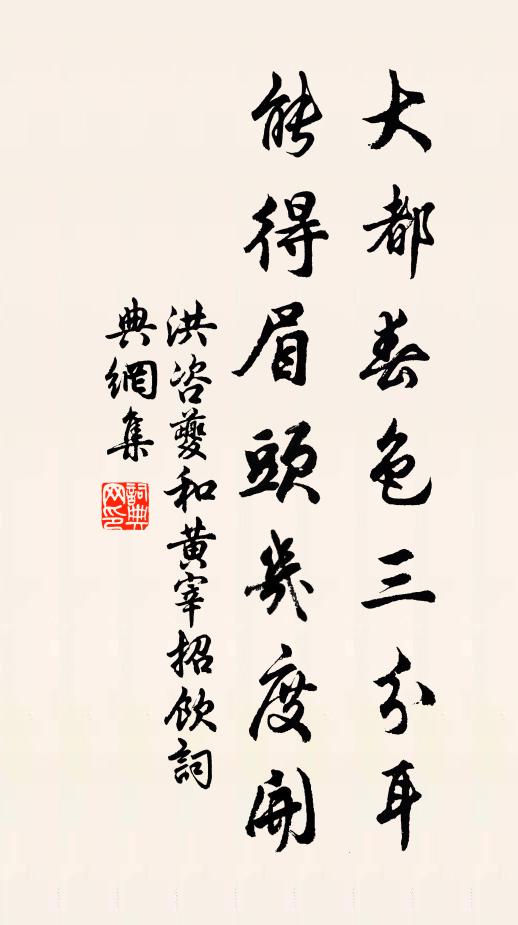 大都春色三分耳
能得眉頭幾度開
洪咨夔和黃宰招飲詞
典網集
詞典
网印